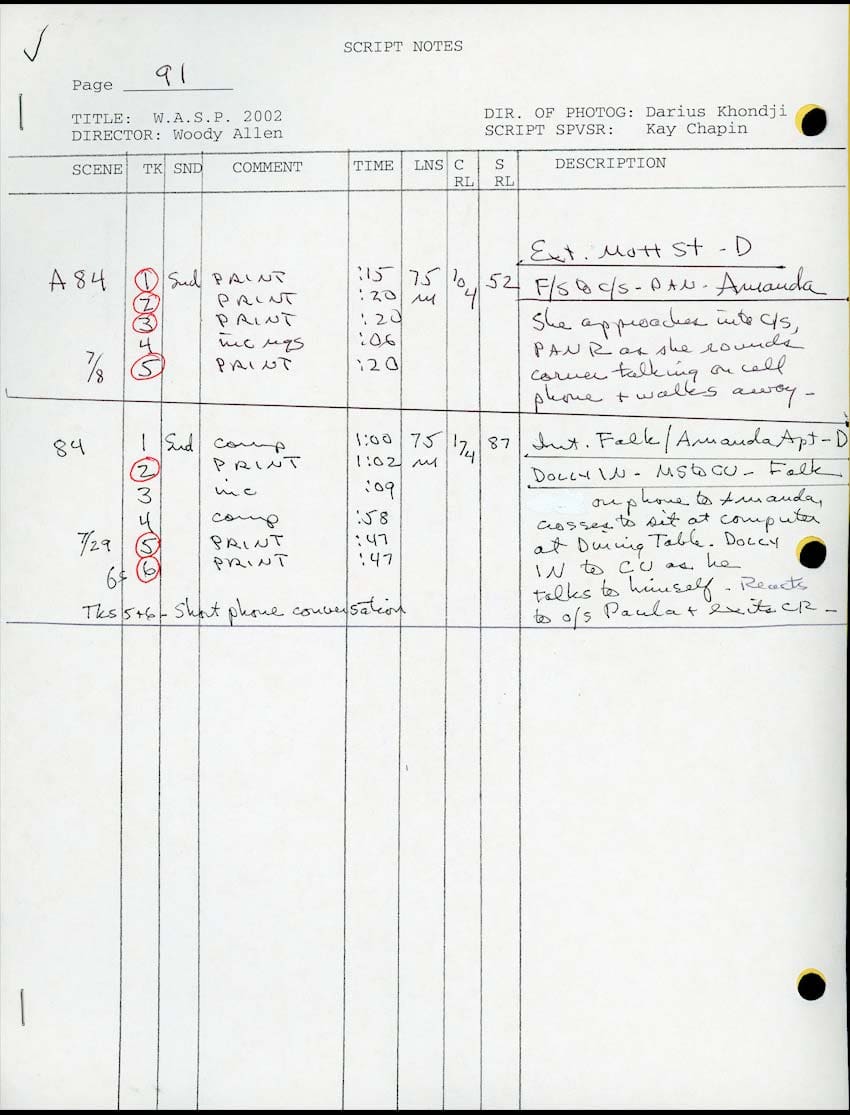 SCRIPT NOTES
Page 91
TITLE: W.A.S.P. 2002
DIR. OF PHOTOG: Darius Khondji
DIRECTOR: Woody Allen
SCRIPT SPVSR: Kay Chapin
SCENE TK SND COMMENT TIME LNS C RL S RL DESCRIPTION
Ext. Mott St - D
A 84 1 Snd PRINT :15 75 m 10/4 52 F/S to C/S - PAN - Amanda
2 PRINT :20
3 PRINT :20 She approaches into C/S,
4 inc ngs :06 PAN R as she rounds
7/8 5 PRINT :20 corner talking on cell
phone + walks away -
84 1 Snd comp 1:00 75 m 17/4 87 Int. Falk/Amanda Apt - D
2 PRINT 1:02 DOLLY IN - MS to CU - Falk
3 inc :09 on phone to Amanda,
4 comp :58 crosses to sit at computer
7/29 5 PRINT :47 at Dining Table. DOLLY
6 PRINT :47 IN to CU as he
talks to himself. Reacts
Tks 5+6 - Short phone conversation to o/s Paula + exits CR -